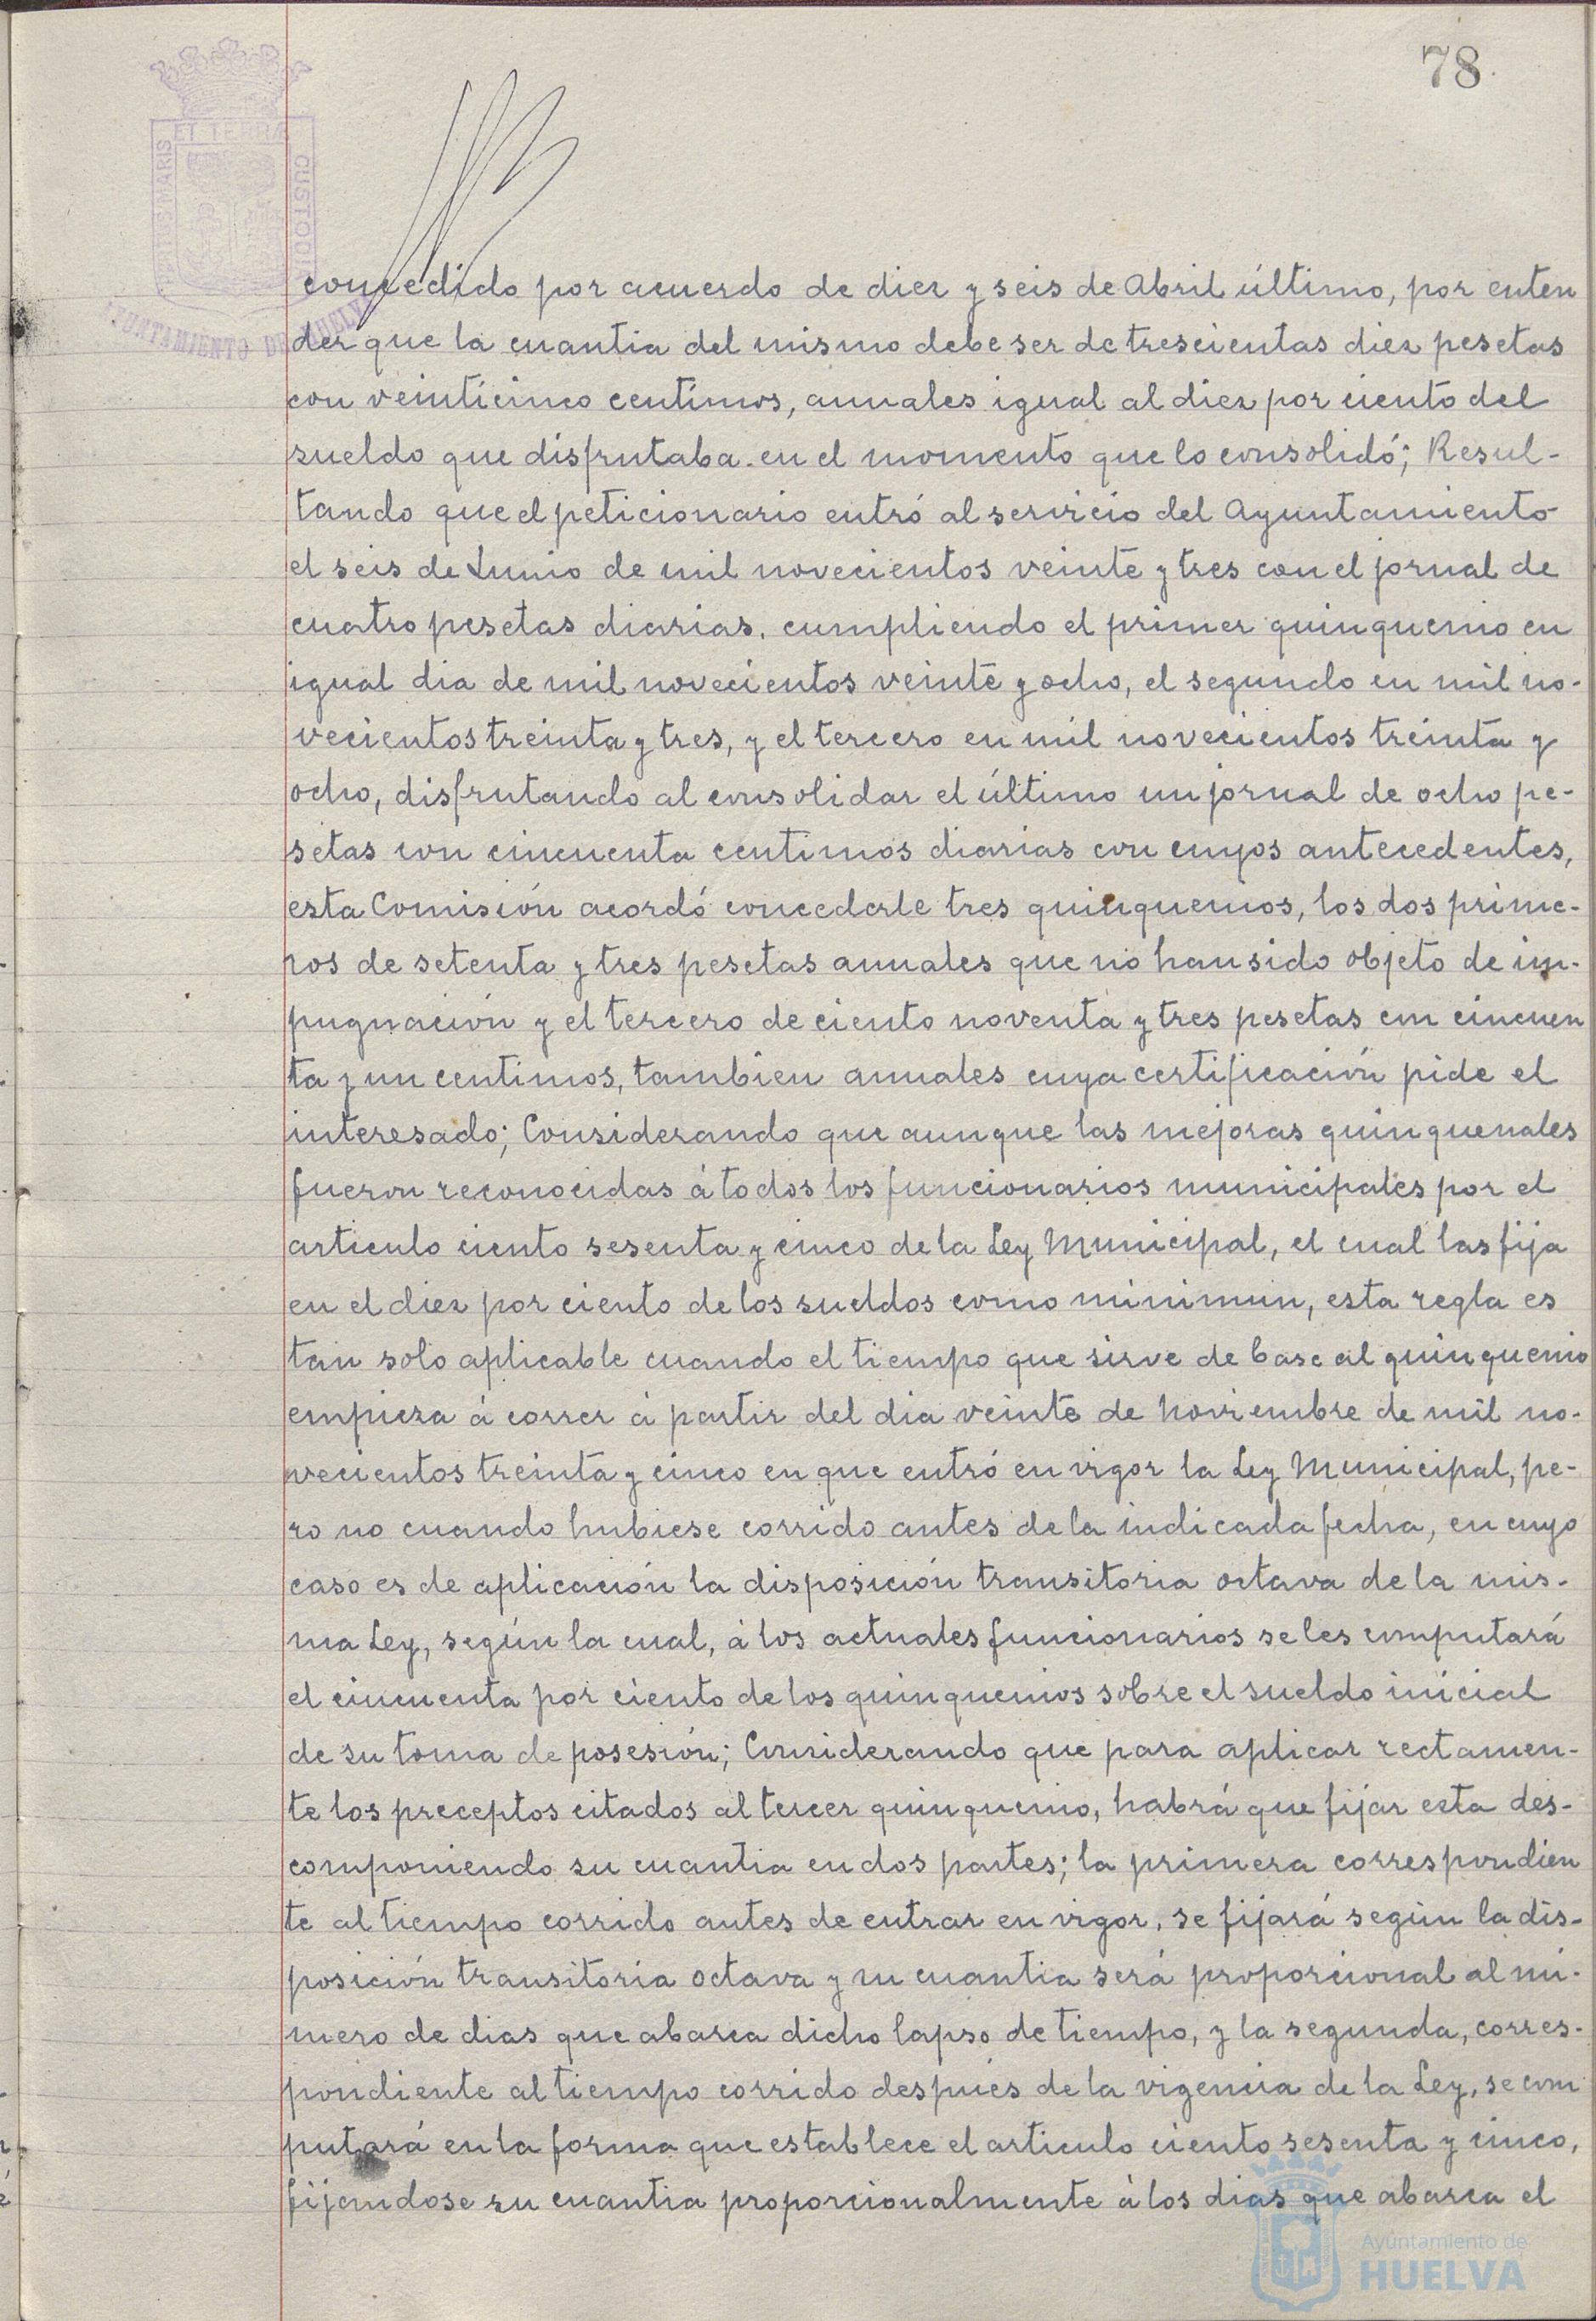 78.
ET TERRÆ
MARIS
CUSTODI
AYUNTAMIENTO DE HUELVA
concedido por acuerdo de diez y seis de Abril último, por enten
der que la cuantia del mismo debe ser de trescientas diez pesetas
con veinticinco centimos, anuales igual al diez por ciento del
sueldo que disfrutaba en el momento que lo consolidó; Resul-
tando que el peticionario entró al servicio del Ayuntamiento
el seis de Junio de mil novecientos veinte y tres con el jornal de
cuatro pesetas diarias, cumpliendo el primer quinquenio en
igual dia de mil novecientos veinte y ocho, el segundo en mil no-
vecientos treinta y tres, y el tercero en mil novecientos treinta y
ocho, disfrutando al consolidar el último un jornal de ocho pe-
setas con cincuenta centimos diarias con cuyos antecedentes,
esta Comisión acordó concederle tres quinquenios, los dos prime-
ros de setenta y tres pesetas anuales que no han sido objeto de im-
pugnación y el tercero de ciento noventa y tres pesetas con cincuen
ta y un centimos, tambien anuales cuya certificación pide el
interesado; Considerando que aunque las mejoras quinquenales
fueron reconocidas á todos los funcionarios municipales por el
articulo ciento sesenta y cinco de la Ley Municipal, el cual las fija
en el diez por ciento de los sueldos como minimun, esta regla es
tan solo aplicable cuando el tiempo que sirve de base al quinquenio
empieza á correr á partir del dia veinte de Noviembre de mil no-
vecientos treinta y cinco en que entró en vigor la Ley Municipal, pe-
ro no cuando hubiese corrido antes de la indicada fecha, en cuyo
caso es de aplicación la disposición transitoria octava de la mis-
ma Ley, según la cual, á los actuales funcionarios se les computará
el cincuenta por ciento de los quinquenios sobre el sueldo inicial
de su toma de posesión; Considerando que para aplicar rectamen-
te los preceptos citados al tercer quinquenio, habrá que fijar esta des-
componiendo su cuantia en dos partes; la primera correspondien
te al tiempo corrido antes de entrar en vigor, se fijará según la dis-
posición transitoria octava y su cuantia será proporcional al nú-
mero de dias que abarca dicho lapso de tiempo, y la segunda, corres-
pondiente al tiempo corrido después de la vigencia de la Ley, se com
putará en la forma que establece el articulo ciento sesenta y cinco,
fijandose su cuantia proporcionalmente á los dias que abarca el
Ayuntamiento de
HUELVA